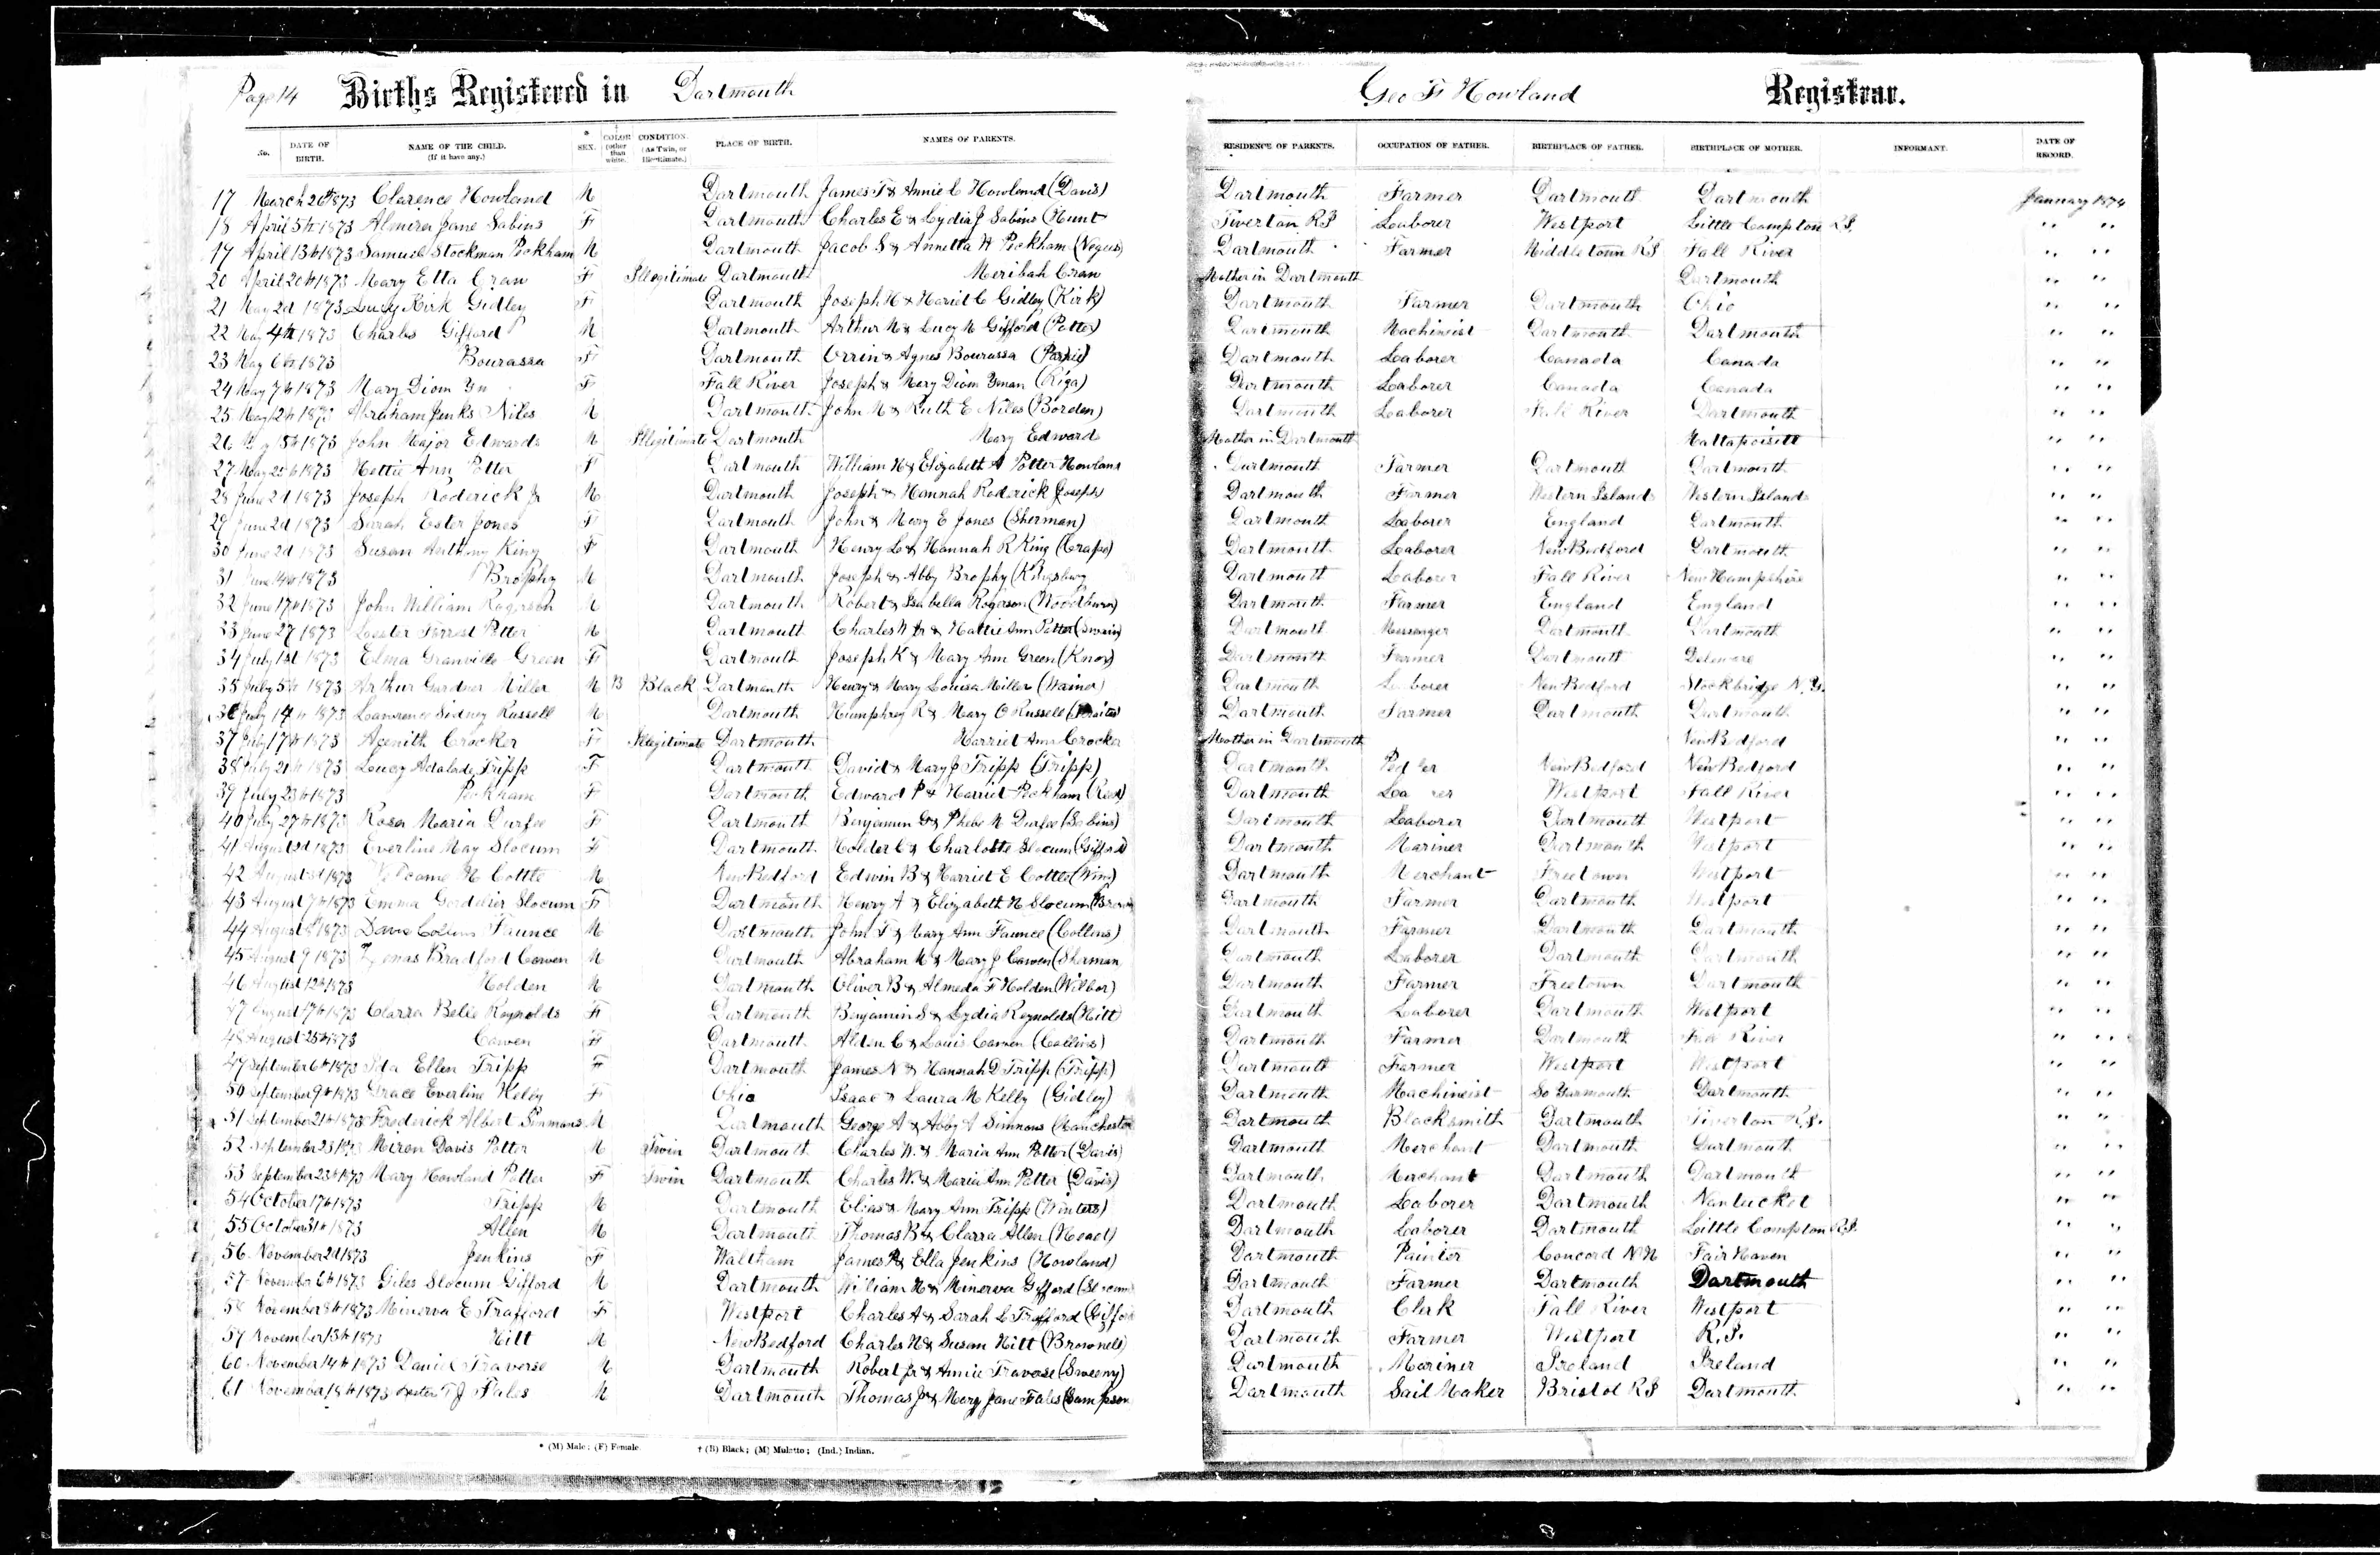 Page 14 Births Registered in Dartmouth Geo F Howland Registrar.
No. DATE OF BIRTH. NAME OF THE CHILD. (If it have any.) * SEX. † COLOR (other than white. CONDITION. (As Twin, or Illegitimate.) PLACE OF BIRTH. NAMES OF PARENTS. RESIDENCE OF PARENTS. OCCUPATION OF FATHER. BIRTHPLACE OF FATHER. BIRTHPLACE OF MOTHER. INFORMANT. DATE OF RECORD.
17 March 26th 1873 Clarence Howland M Dartmouth James T & Annie C Howland (Davis) Dartmouth Farmer Dartmouth Dartmouth January 1874
18 April 5th 1873 Almira Jane Sabins F Dartmouth Charles E & Lydia J Sabins (Hunt Tiverton RI Laborer Westport Little Compton RI. " "
19 April 13th 1873 Samuel Stockman Peckham M Dartmouth Jacob S & Annetta H Peckham (Negus) Dartmouth Farmer Middletown RI Fall River " "
20 April 20th 1873 Mary Etta Cran F Illegitimate Dartmouth Meribah Cran Mother in Dartmouth Dartmouth " "
21 May 2d 1873 Lucy Kirk Gidley F Dartmouth Joseph H & Hariel C Gidley (Kirk) Dartmouth Farmer Dartmouth Ohio " "
22 May 4th 1873 Charles Gifford M Dartmouth Arthur N & Lucy N Gifford (Potter) Dartmouth Machineist Dartmouth Dartmouth " "
23 May 6th 1873 Bourassa F Dartmouth Orrin & Agnes Bourassa Dartmouth Laborer Canada Canada " "
24 May 7th 1873 Mary Diom F Fall River Joseph & Mary Diom (Riga) Dartmouth Laborer Canada Canada " "
25 May 12th 1873 Abraham Jenks Niles M Dartmouth John N & Ruth E Niles (Borden) Dartmouth Laborer Fall River Dartmouth " "
26 15th 1873 John Major Edwards M Illegitimate Dartmouth Mary Edwards Mother in Dartmouth Mattapoisett " "
27 May 25th 1873 Hettie Ann Potter F Dartmouth William H & Elizabeth A Potter Howland Dartmouth Farmer Dartmouth Dartmouth " "
28 June 2d 1873 Joseph Roderick Jr M Dartmouth Joseph & Hannah Roderick Joseph Dartmouth Farmer Western Islands Western Islands " "
29 June 2d 1873 Sarah Ester Jones F Dartmouth John & Mary E Jones (Sherman) Dartmouth Laborer England Dartmouth " "
30 June 2d 1873 Susan Anthony King F Dartmouth Henry L & Hannah R King (Crapo) Dartmouth Laborer New Bedford Dartmouth " "
31 June 14th 1873 Brophy M Dartmouth Joseph & Abby Brophy (Kingsbury Dartmouth Laborer Fall River New Hampshire " "
32 June 17th 1873 John William Rogerson M Dartmouth Robert & Isabella Rogerson (Woodburn) Dartmouth Farmer England England " "
33 June 27 1873 Lester Forrest Potter M Dartmouth Charles W Jr & Hattie Ann Potter (Swain) Dartmouth Messenger Dartmouth Dartmouth " "
34 July 1st 1873 Elma Granville Green F Dartmouth Joseph K & Mary Ann Green (Knox) Dartmouth Farmer Dartmouth Deleware " "
35 July 5th 1873 Arthur Gardner Miller M B Black Dartmouth Henry & Mary Louisa Miller (Wainer) Dartmouth Laborer New Bedford Stockbridge N.Y. " "
36 July 14th 1873 Lawrence Sidney Russell M Dartmouth Humphrey R & Mary O Russell Dartmouth Farmer Dartmouth Dartmouth " "
37 July 17th 1873 Acenith Crocker F Illegitimate Dartmouth Harriet Ann Crocker Mother in Dartmouth New Bedford " "
38 July 21th 1873 Leucy Adalade Tripp F Dartmouth David & Mary J Tripp (Tripp) Dartmouth Pedler New Bedford New Bedford " "
39 July 23th 1873 Peckham F Dartmouth Edward P & Harriet Peckham (Reed) Dartmouth Westport Fall River " "
40 July 27th 1873 Rosa Maria Durfee F Dartmouth Benjamin G & Phebe N Durfee (Sabins) Dartmouth Laborer Dartmouth Westport " "
41 August 1873 Everline May Slocum F Dartmouth Holder C & Charlotte Slocum (Gifford) Dartmouth Mariner Dartmouth Westport " "
42 August 1873 Welcome H Cottle M New Bedford Edwin B & Harriet E Cottle (Wing) Dartmouth Merchant Freetown Westport " "
43 August 7th 1873 Emma Slocum F Dartmouth Henry A & Elizabeth N Slocum (Brown Dartmouth Farmer Dartmouth Westport " "
44 August 8th 1873 Collins Faunce M Dartmouth John T & Mary Ann Faunce (Collins) Dartmouth Farmer Dartmouth Dartmouth " "
45 August 9 1873 Bradford Cowen M Dartmouth Abraham M & Mary J Cowen (Sherman Dartmouth Laborer Dartmouth Dartmouth " "
46 August 12th 1873 Holden M Dartmouth Oliver B & Almeda F Holden (Wilbor) Dartmouth Farmer Freetown Dartmouth " "
47 August 17th 1873 Clarra Belle Reynolds F Dartmouth Benjamin S & Lydia Reynolds (Hitt) Dartmouth Laborer Dartmouth Westport " "
48 August 25th 1873 Cowen F Dartmouth Alden C & Louis Cowen (Collins) Dartmouth Farmer Dartmouth Fall River " "
49 September 6th 1873 Ida Ellen Tripp F Dartmouth James N & Hannah D Tripp (Tripp) Dartmouth Farmer Westport Westport " "
50 September 9th 1873 Grace Everline Kelley F Ohio Isaac & Laura M Kelly (Gidley) Dartmouth Machineist So Yarmouth Dartmouth " "
51 September 21th 1873 Frederick Albert Simmons M Dartmouth George A & Abby A Simmons (Manchester Dartmouth Blacksmith Dartmouth Tiverton R.I. " "
52 September 23 1873 Miron Davis Potter M Twin Dartmouth Charles W. & Maria Ann Potter (Davis) Dartmouth Merchant Dartmouth Dartmouth " "
53 September 23th 1873 Mary Howland Potter F Twin Dartmouth Charles W. & Maria Ann Potter (Davis) Dartmouth Merchant Dartmouth Dartmouth " "
54 October 17th 1873 Tripp M Dartmouth Elias & Mary Ann Tripp (Winters) Dartmouth Laborer Dartmouth Nantucket " "
55 October 31th 1873 Allen M Dartmouth Thomas B & Clarra Allen (Head) Dartmouth Laborer Dartmouth Little Compton R.I. " "
56 November 2d 1873 Jenkins F Waltham James R & Ella Jenkins (Howland) Dartmouth Painter Concord N H Fair Haven " "
57 November 6th 1873 Giles Slocum Gifford M Dartmouth William H & Minerva Gifford (Slocum Dartmouth Farmer Dartmouth Dartmouth " "
58 November 8th 1873 Minerva E Trafford F Westport Charles A & Sarah L Trafford (Gifford Dartmouth Clerk Fall River Westport " "
59 November 13th 1873 Hitt M New Bedford Charles H & Susan Hitt (Brownell) Dartmouth Farmer Westport R.I. " "
60 November 14th 1873 Daniel Traverse M Dartmouth Robert Jr & Annie Traverse (Sweeny) Dartmouth Mariner Ireland Ireland " "
61 November 18th 1873 Lester T J Fales M Dartmouth Thomas Jr & Mary Jane Fales (Sampson Dartmouth Sail Maker Bristol RI Dartmouth " "
* (M) Male; (F) Female. † (B) Black; (M) Mulatto; (Ind.) Indian.